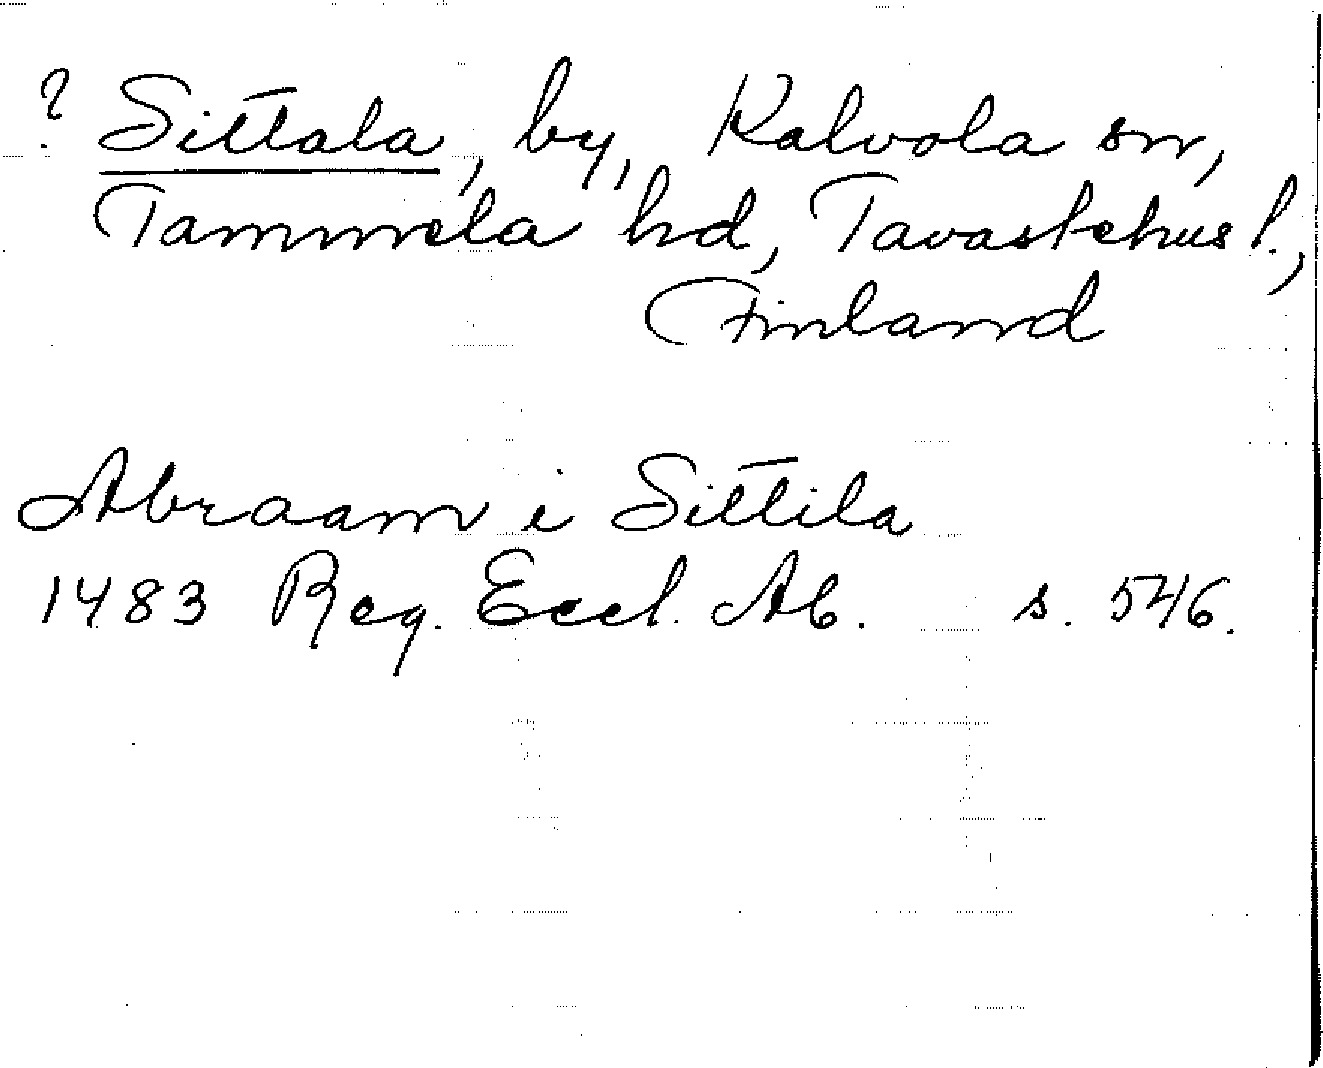 ? Sittala, by, Kalvola sn,
Tammela hd, Tavastehus l.,
Finland
Abraam i Sittila
1483 Reg. Eccl. Ab. s. 546.